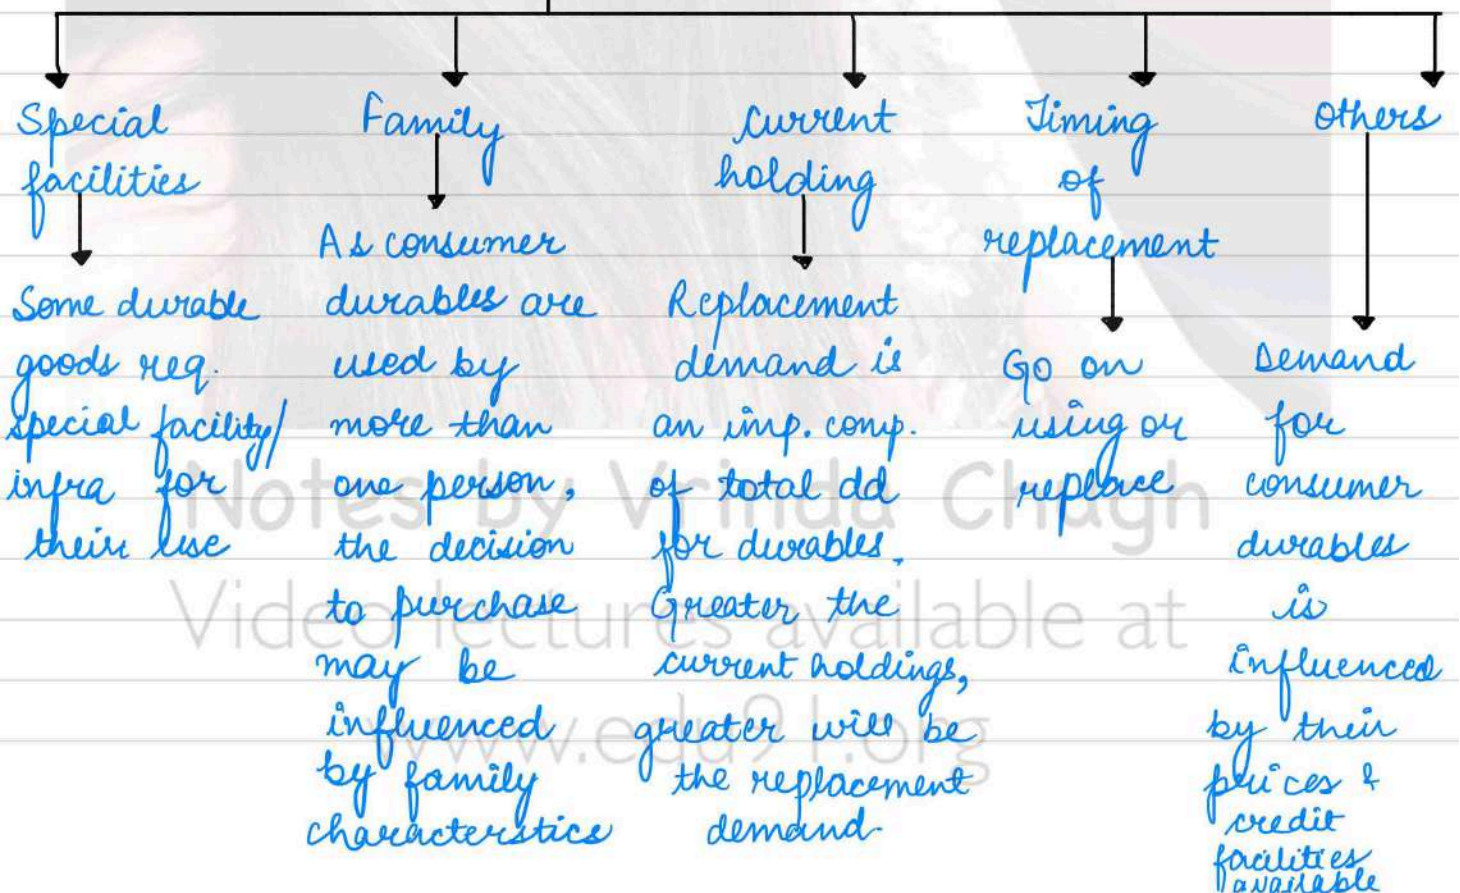 Special
facilities
Some durable
goods req.
special facility/
infra for
their use
Family
As consumer
durables are
used by
more than
one person,
the decision
to purchase
may be
influenced
by family
characterstics
Current
holding
Replacement
demand is
an imp. comp.
of total dd
for durables.
Greater the
current holdings,
greater will be
the replacement
demand.
Timing
of
replacement
Go on
using or
replace
Others
Demand
for
consumer
durables
is
influenced
by their
prices &
credit
facilities
available
Notes by Vrinda Chugh
Video lectures available at
www.edu91.org